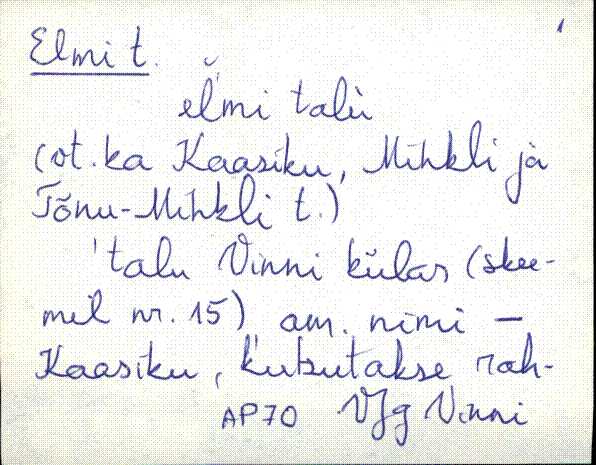 Elmi t.
el̆mi talù
(vt. ka Kaasiku, Mihkli jà
Tõnu-Mihkli t.)
'talu Vinni külas (skee-
mil nr. 15) am. nimi –
Kaasiku, kutsutakse rah-
AP70 VJg Vinni